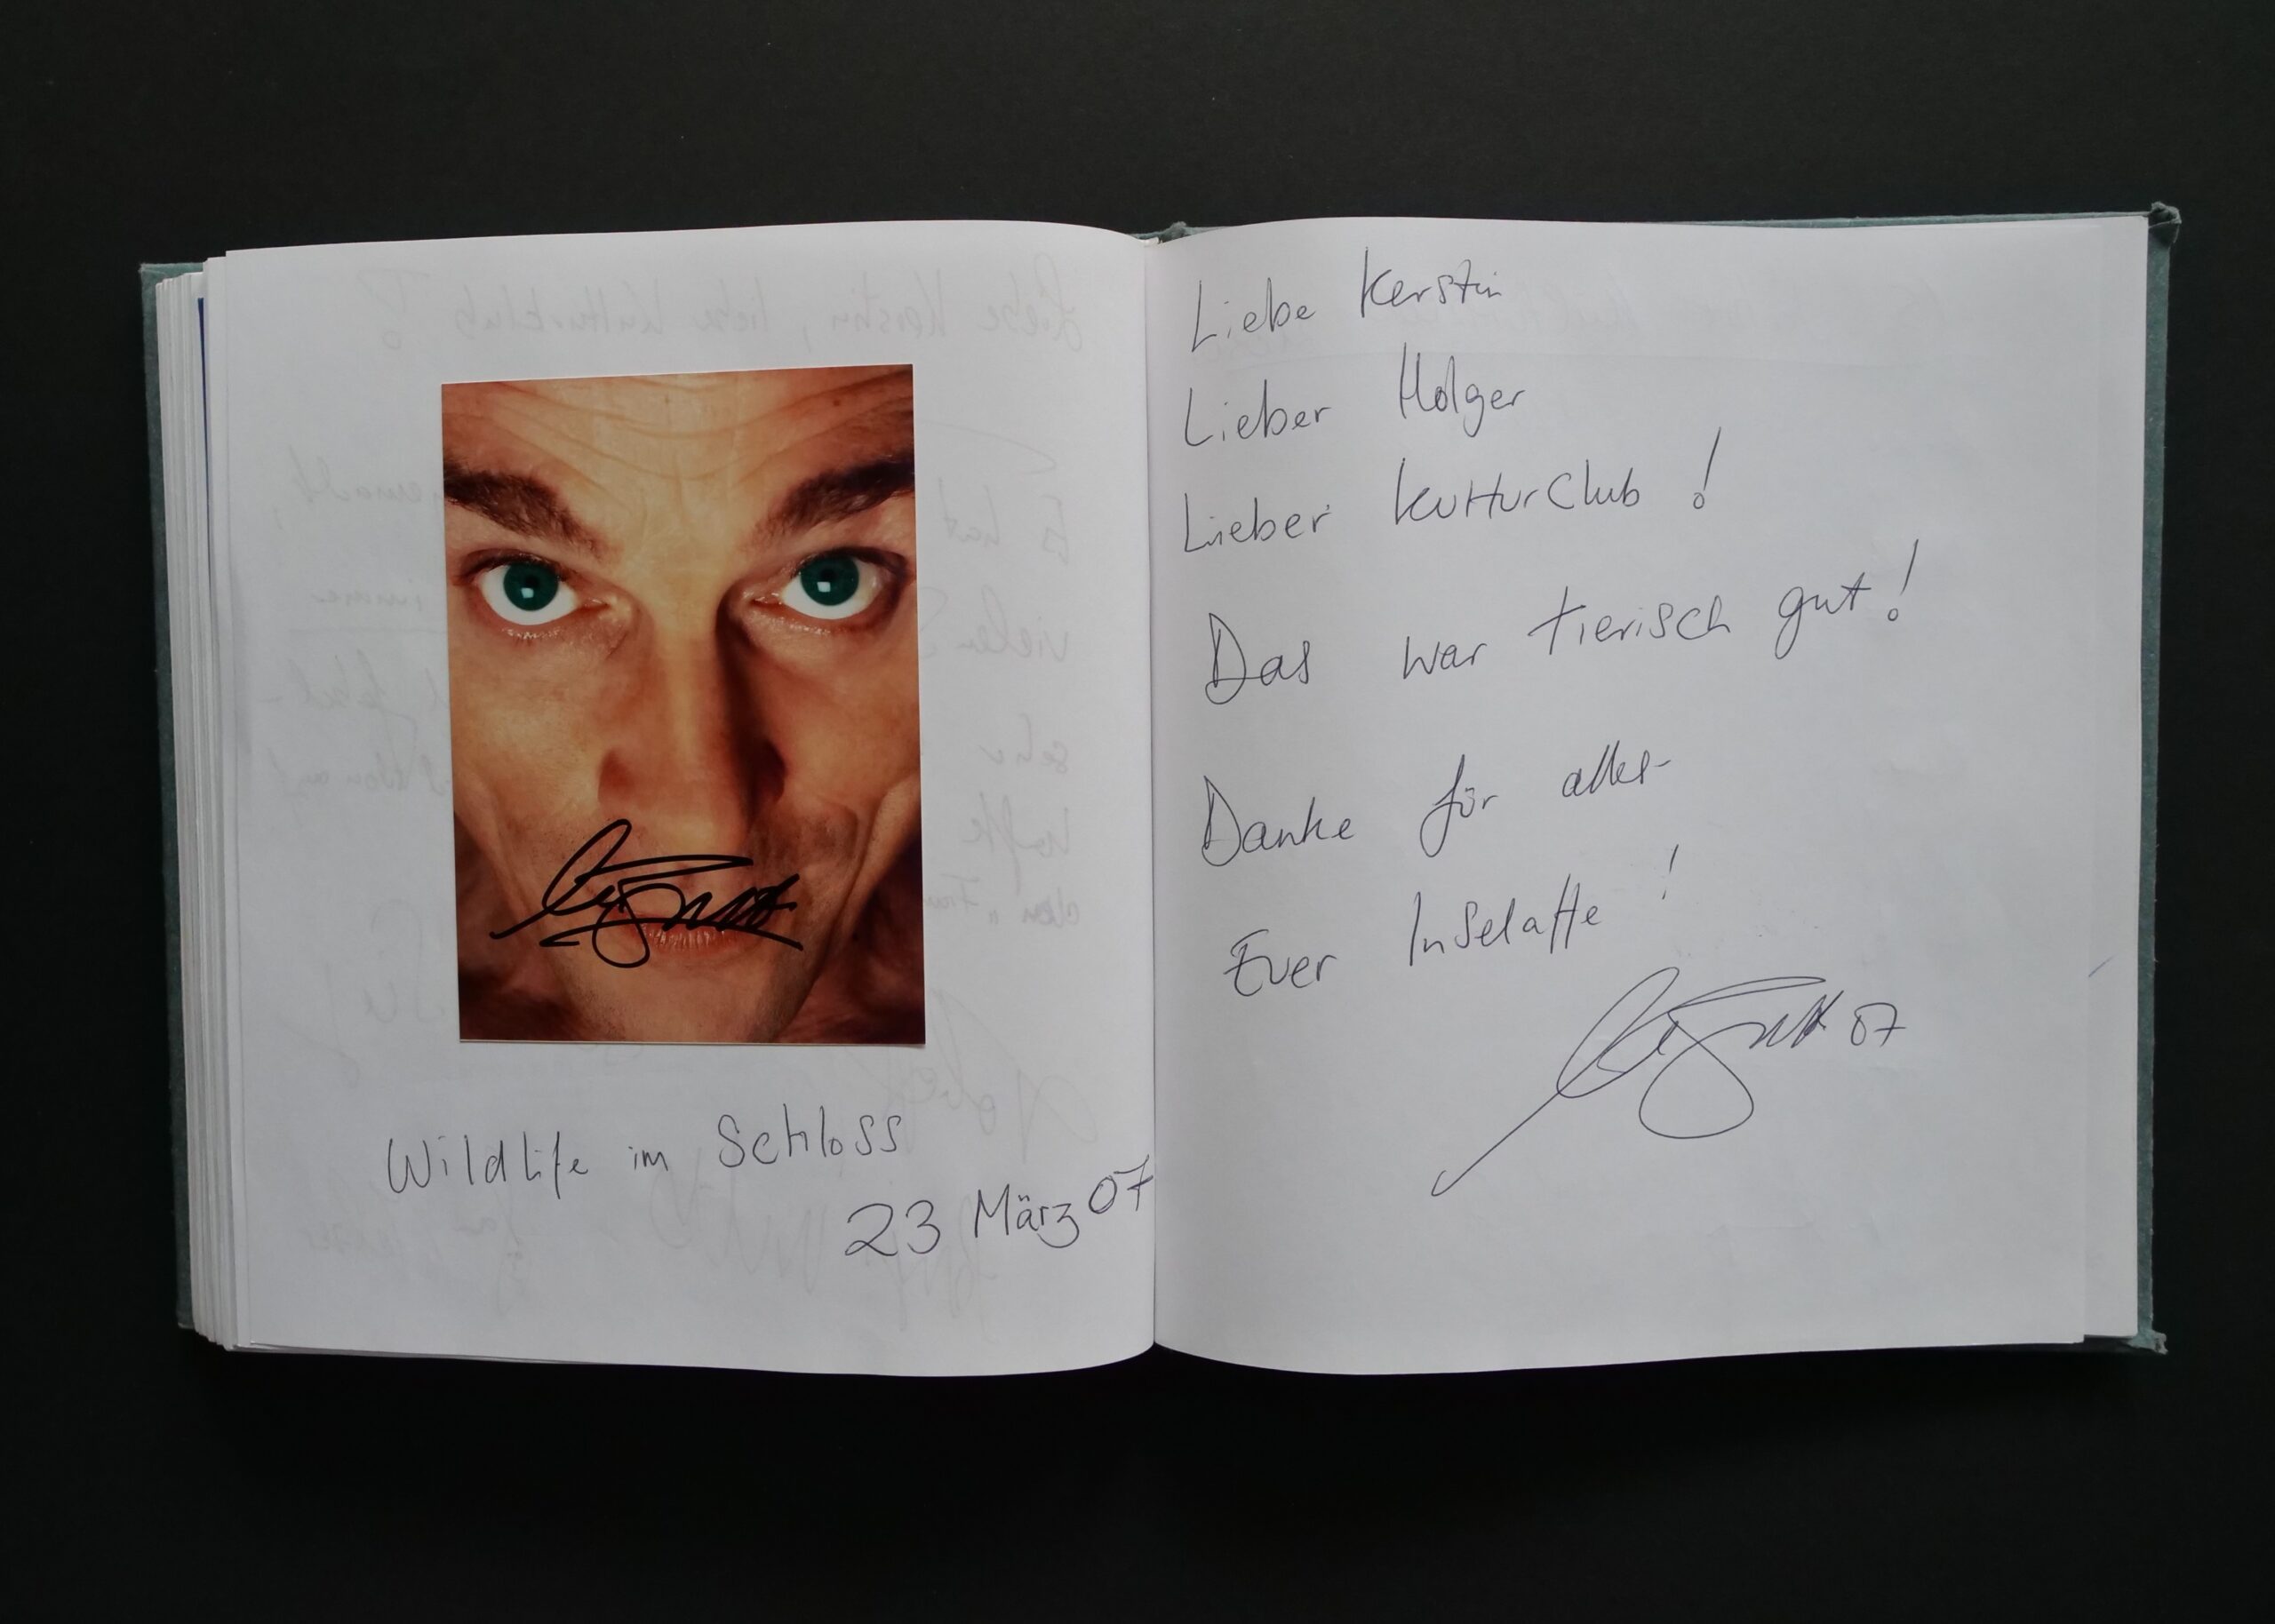 Wildlife im Schloss
23 März 07
Liebe Kerstin
Lieber Holger
Lieber Kulturclub !
Das war tierisch gut !
Danke für alles
Euer Inselaffe !
07